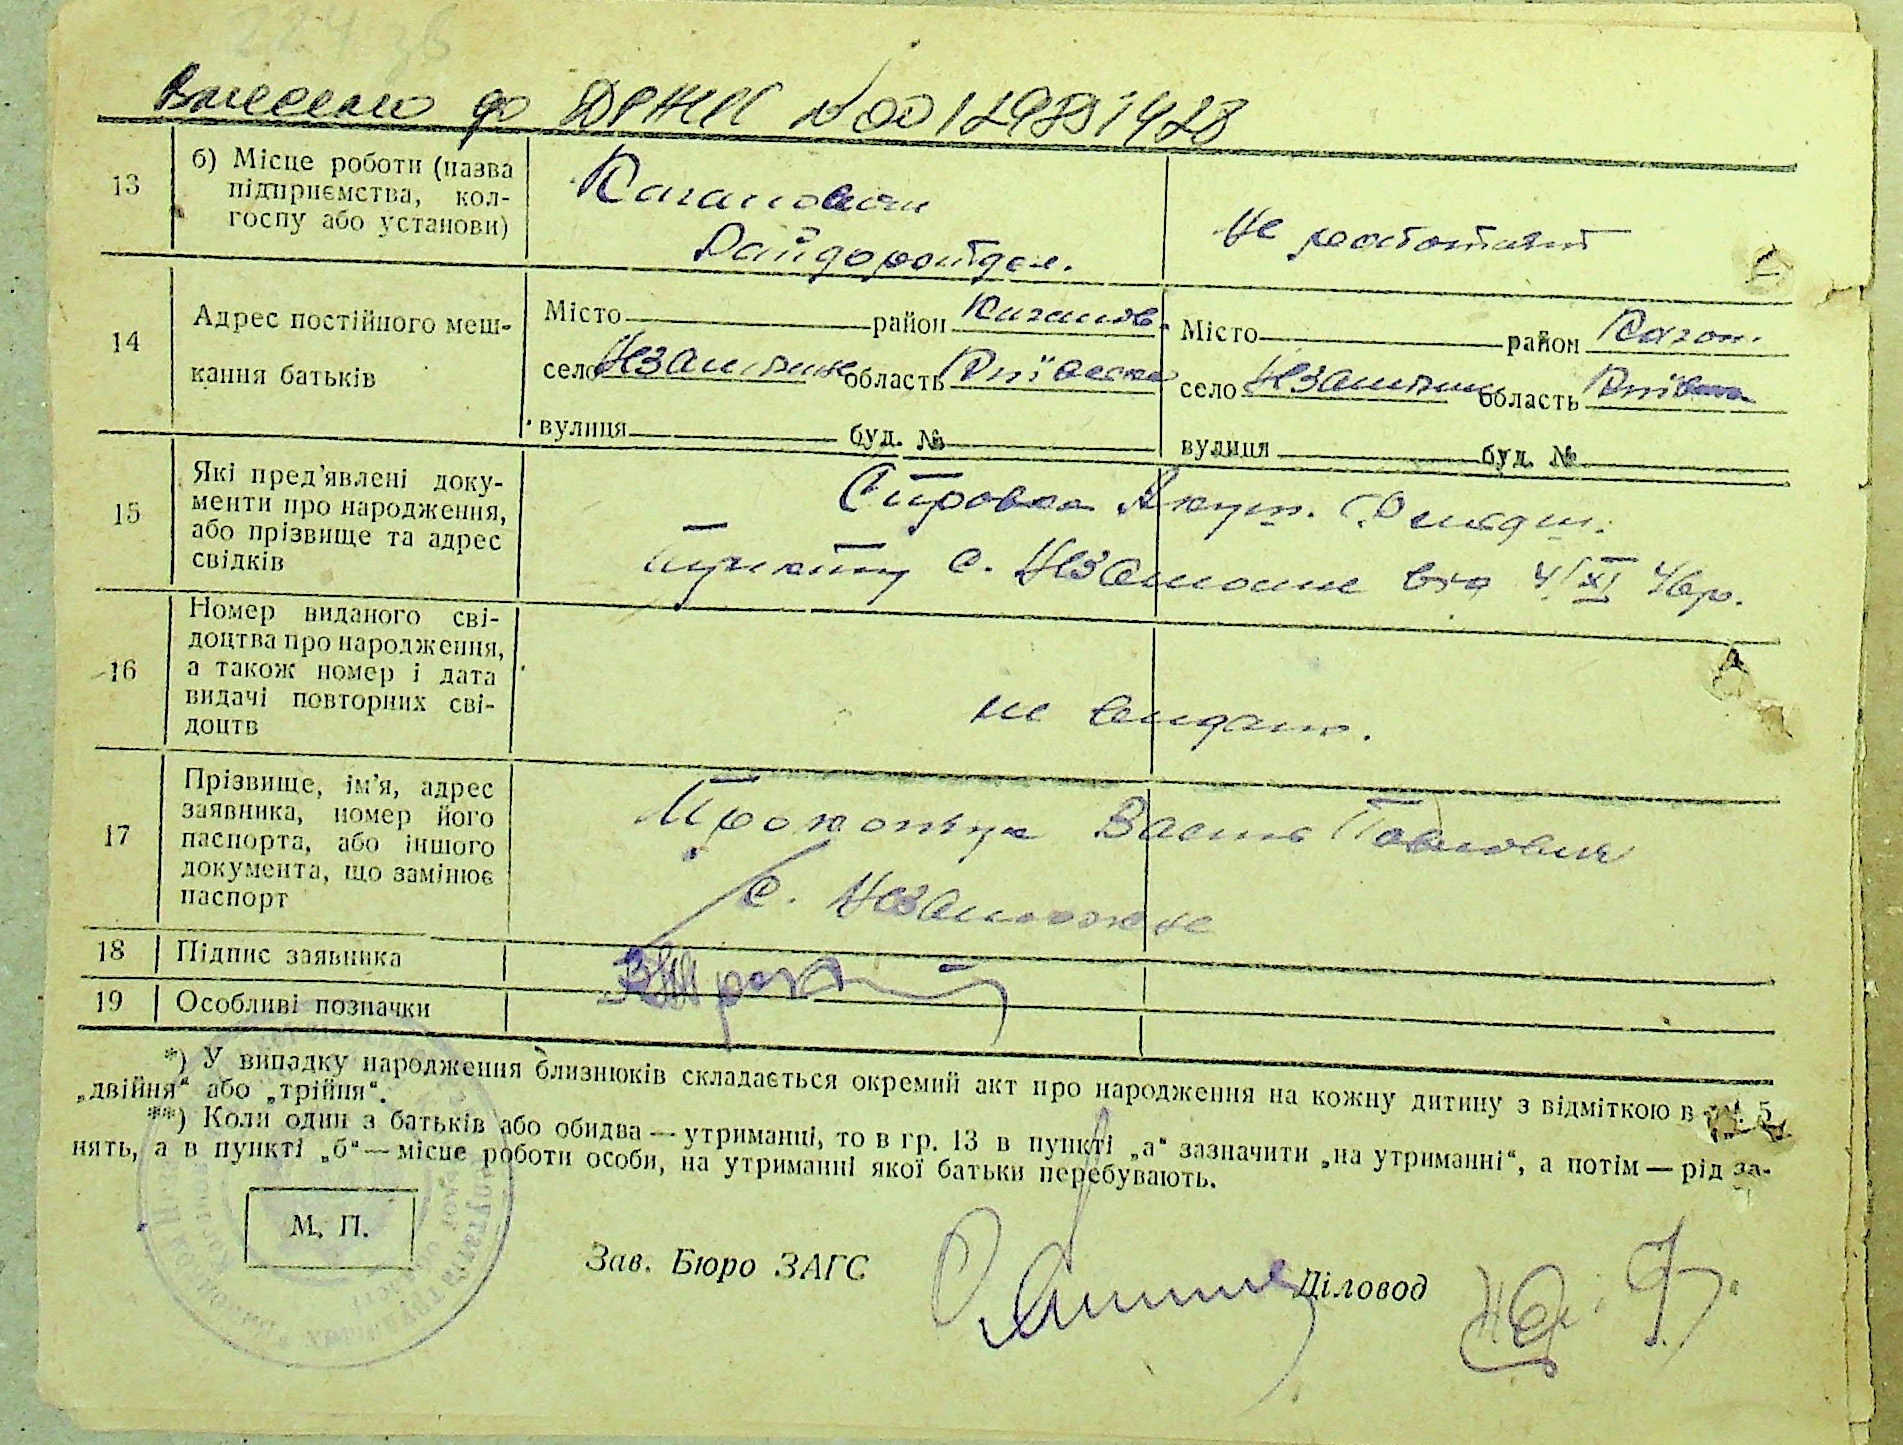 Внесено до ДРАЦС № 00129891428
13
б) Місце роботи (назва підприємства, колгоспу або установи)
Каганович
Райдорвідділ.
не работает
14
Адрес постійного мешкання батьків
Місто район Каганов.
село Незаможне область Київська
вулиця буд. №
Місто район Каган.
село Незаможне область Київська
вулиця буд. №
15
Які пред'явлені документи про народження, або прізвище та адрес свідків
Справка Акуш.
пункту с. Незаможне від 4/XI 46р.
16
Номер виданого свідоцтва про народження, а також номер і дата видачі повторних свідоцтв
не видано.
17
Прізвище, ім'я, адрес заявника, номер його паспорта, або іншого документа, що замінює паспорт
Прокопчук Василь Павлович
с. Незаможне
18
Підпис заявника
19
Особливі позначки
*) У випадку народження близнюків складається окремий акт про народження на кожну дитину з відміткою в гр. 5
„двійня“ або „трійня“.
**) Коли один з батьків або обидва — утриманці, то в гр. 13 в пункті „а“ зазначити „на утриманні“, а потім — рід за-
нять, а в пункті „б“ — місце роботи особи, на утриманні якої батьки перебувають.
М. П.
Зав. Бюро ЗАГС
Діловод